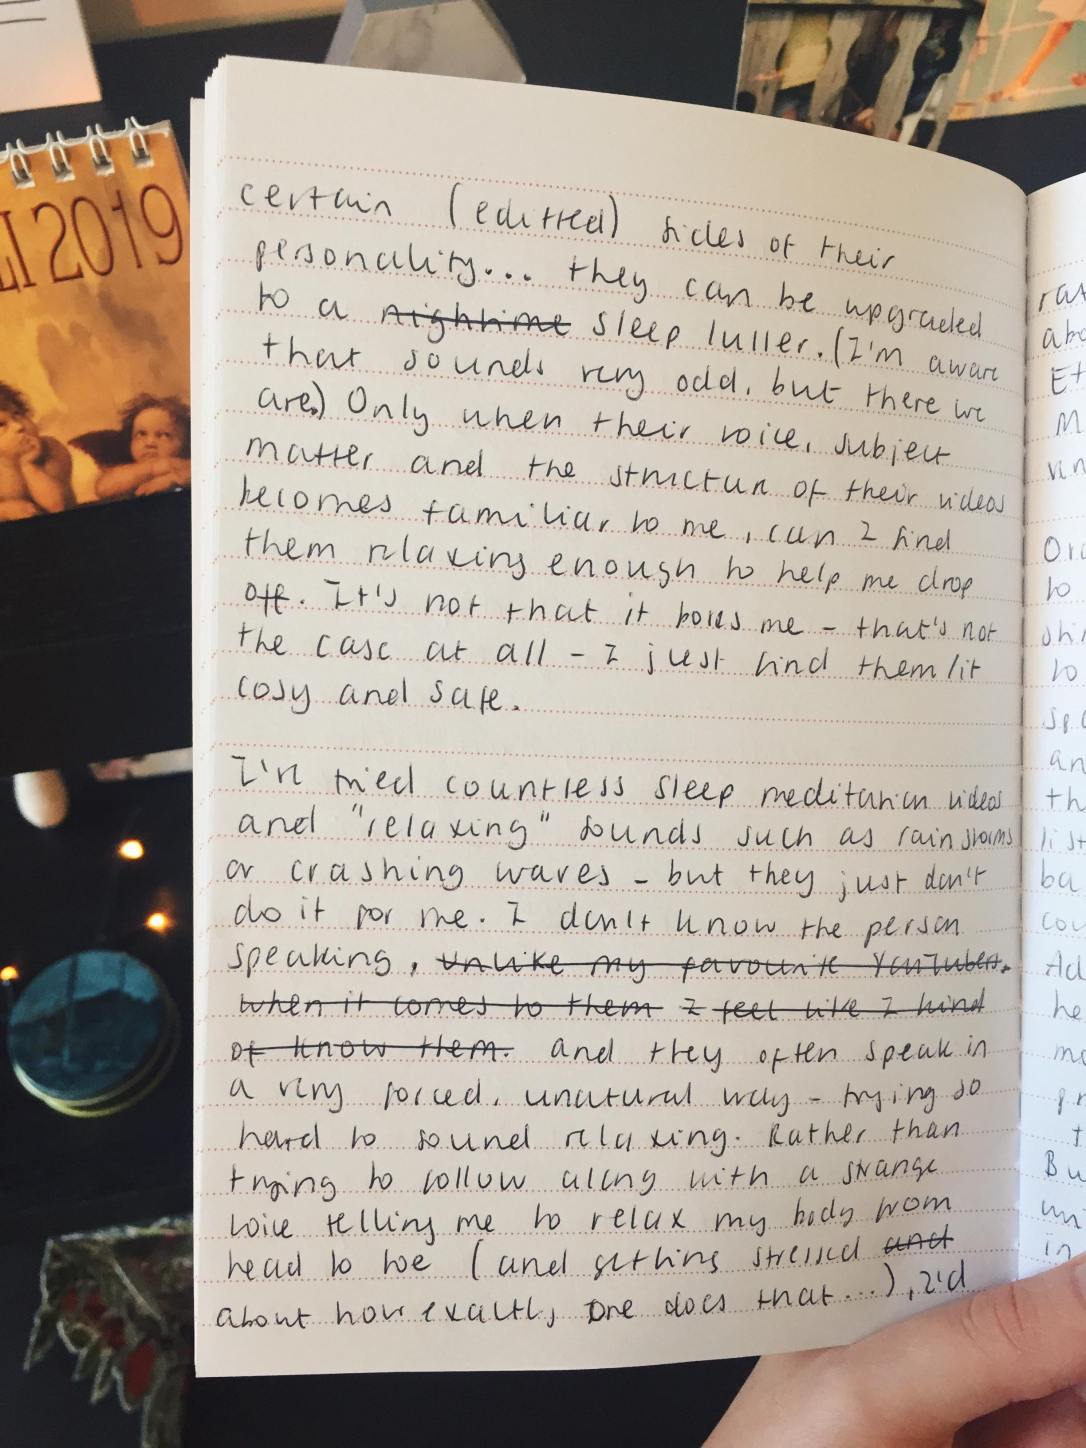 I 2019
certain (editted) sides of their
personality... they can be upgraded
to a nightime sleep luller. (I'm aware
that sounds very odd, but there we
are.) Only when their voice, subject
matter and the structure of their videos
becomes familiar to me, can I find
them relaxing enough to help me drop
off. It's not that it bores me - that's not
the case at all - I just find them/it
cosy and safe.
I've tried countless sleep meditation videos
and "relaxing" sounds such as rain storms
or crashing waves - but they just don't
do it for me. I don't know the person
speaking, unlike my favourite YouTubers.
when it comes to them I feel like I kind
of know them. and they often speak in
a very forced, unatural way - trying so
hard to sound relaxing. Rather than
trying to follow along with a strange
voice telling me to relax my body from
head to toe (and getting stressed and
about how exactly one does that...), I'd